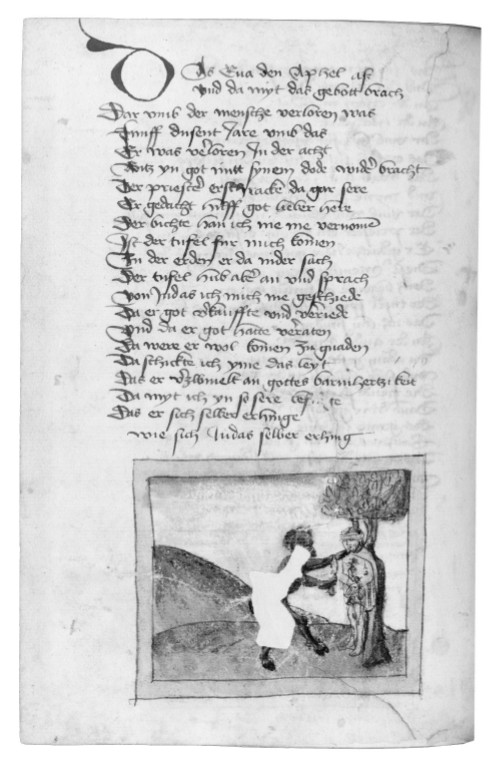 Das Eua den Aphel aß
vnd da myt das gebott brach
Dar vmb der mensche verloren was
Funff dusent Jare vmb das
Er was verloren Jn der acht
yn got mitt synem dode wider bracht
Der priester erschracke da gar sere
Er gedacht hilff got lieber here
Der bichte han ich nie me vernomen
Jst der tufel fur mich komen
Jn der erden er da nider sach
Der tufel hub aber an vnd sprach
von Judas ich mich nie geschiede
Da er got verkauffte vnd verriede
vnd da er got hatte verraten
Da were er wol komen zu gnaden
Da schickte ich yme das leyt
Das er an gottes barmhertzikeit
Da myt ich yn so sere
Das er sich selber erhinge
wie sich Judas selber erhing